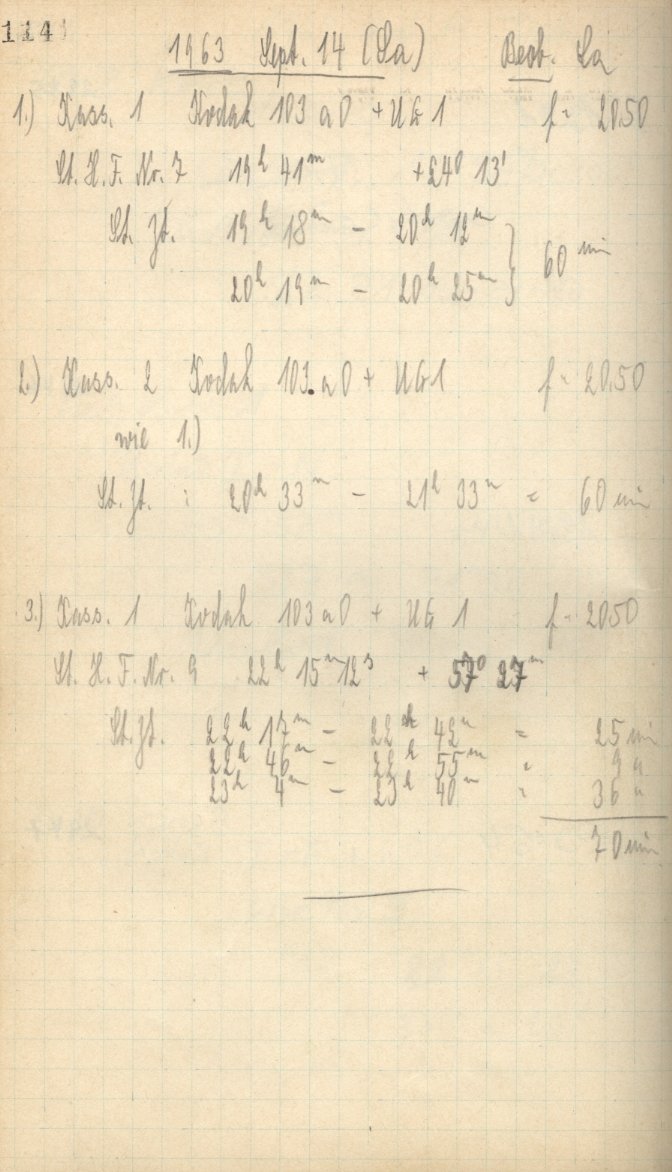 114
1963 Sept. 14 (Sa) Beob. La
1.) Kass. 1 Kodak 103 aO + UG 1 f = 20.50
St. H. F. Nr. 7 19h 41m +24° 13'
St. Zt. 19h 18m – 20h 12m } 60 min
20h 19m – 20h 25m
2.) Kass. 2 Kodak 103 aO + UG1 f = 20.50
wie 1.)
St. Zt. : 20h 33m – 21h 33m = 60 min
3.) Kass. 1 Kodak 103 aO + UG 1 f = 2050
St. H. F. Nr. 9 22h 15m 12s + 57° 27m
St. Zt. 22h 17m – 22h 42m = 25 min
22h 46m – 22h 55m = 9 "
23h 4m – 23h 40m = 36 "
70 min